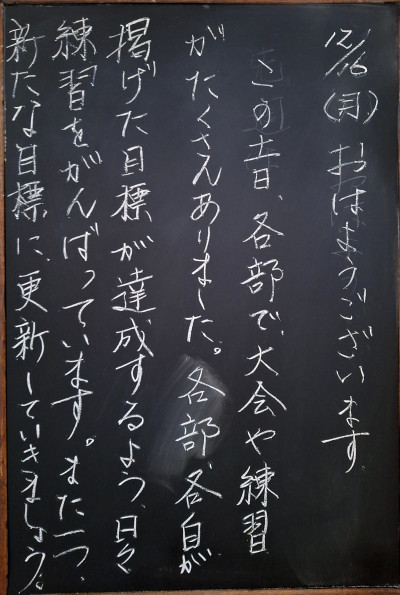 12/16(月) おはようございます
この土日、各部で、大会や練習
がたくさんありました。各部、各自が
掲げた目標が達成するよう、日々
練習をがんばっています。また一つ、
新たな目標に、更新していきましょう。